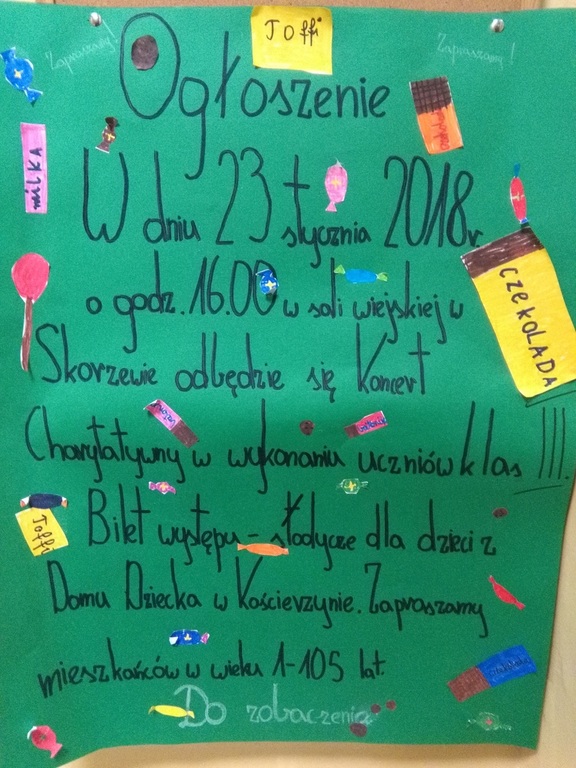 Toffi
Zapraszamy!
Zapraszamy!
Ogłoszenie
MILKA
W dniu 23 stycznia 2018r.
o godz. 16.00 w sali wiejskiej w
CZEKOLADA
Skorzewie odbędzie się Koncert
Charytatywny w wykonaniu uczniów klas III.
Bilet występu - słodycze dla dzieci z
Toffi
Domu Dziecka w Kościerzynie. Zapraszamy
mieszkańców w wieku 1-105 lat.
Do zobaczenia